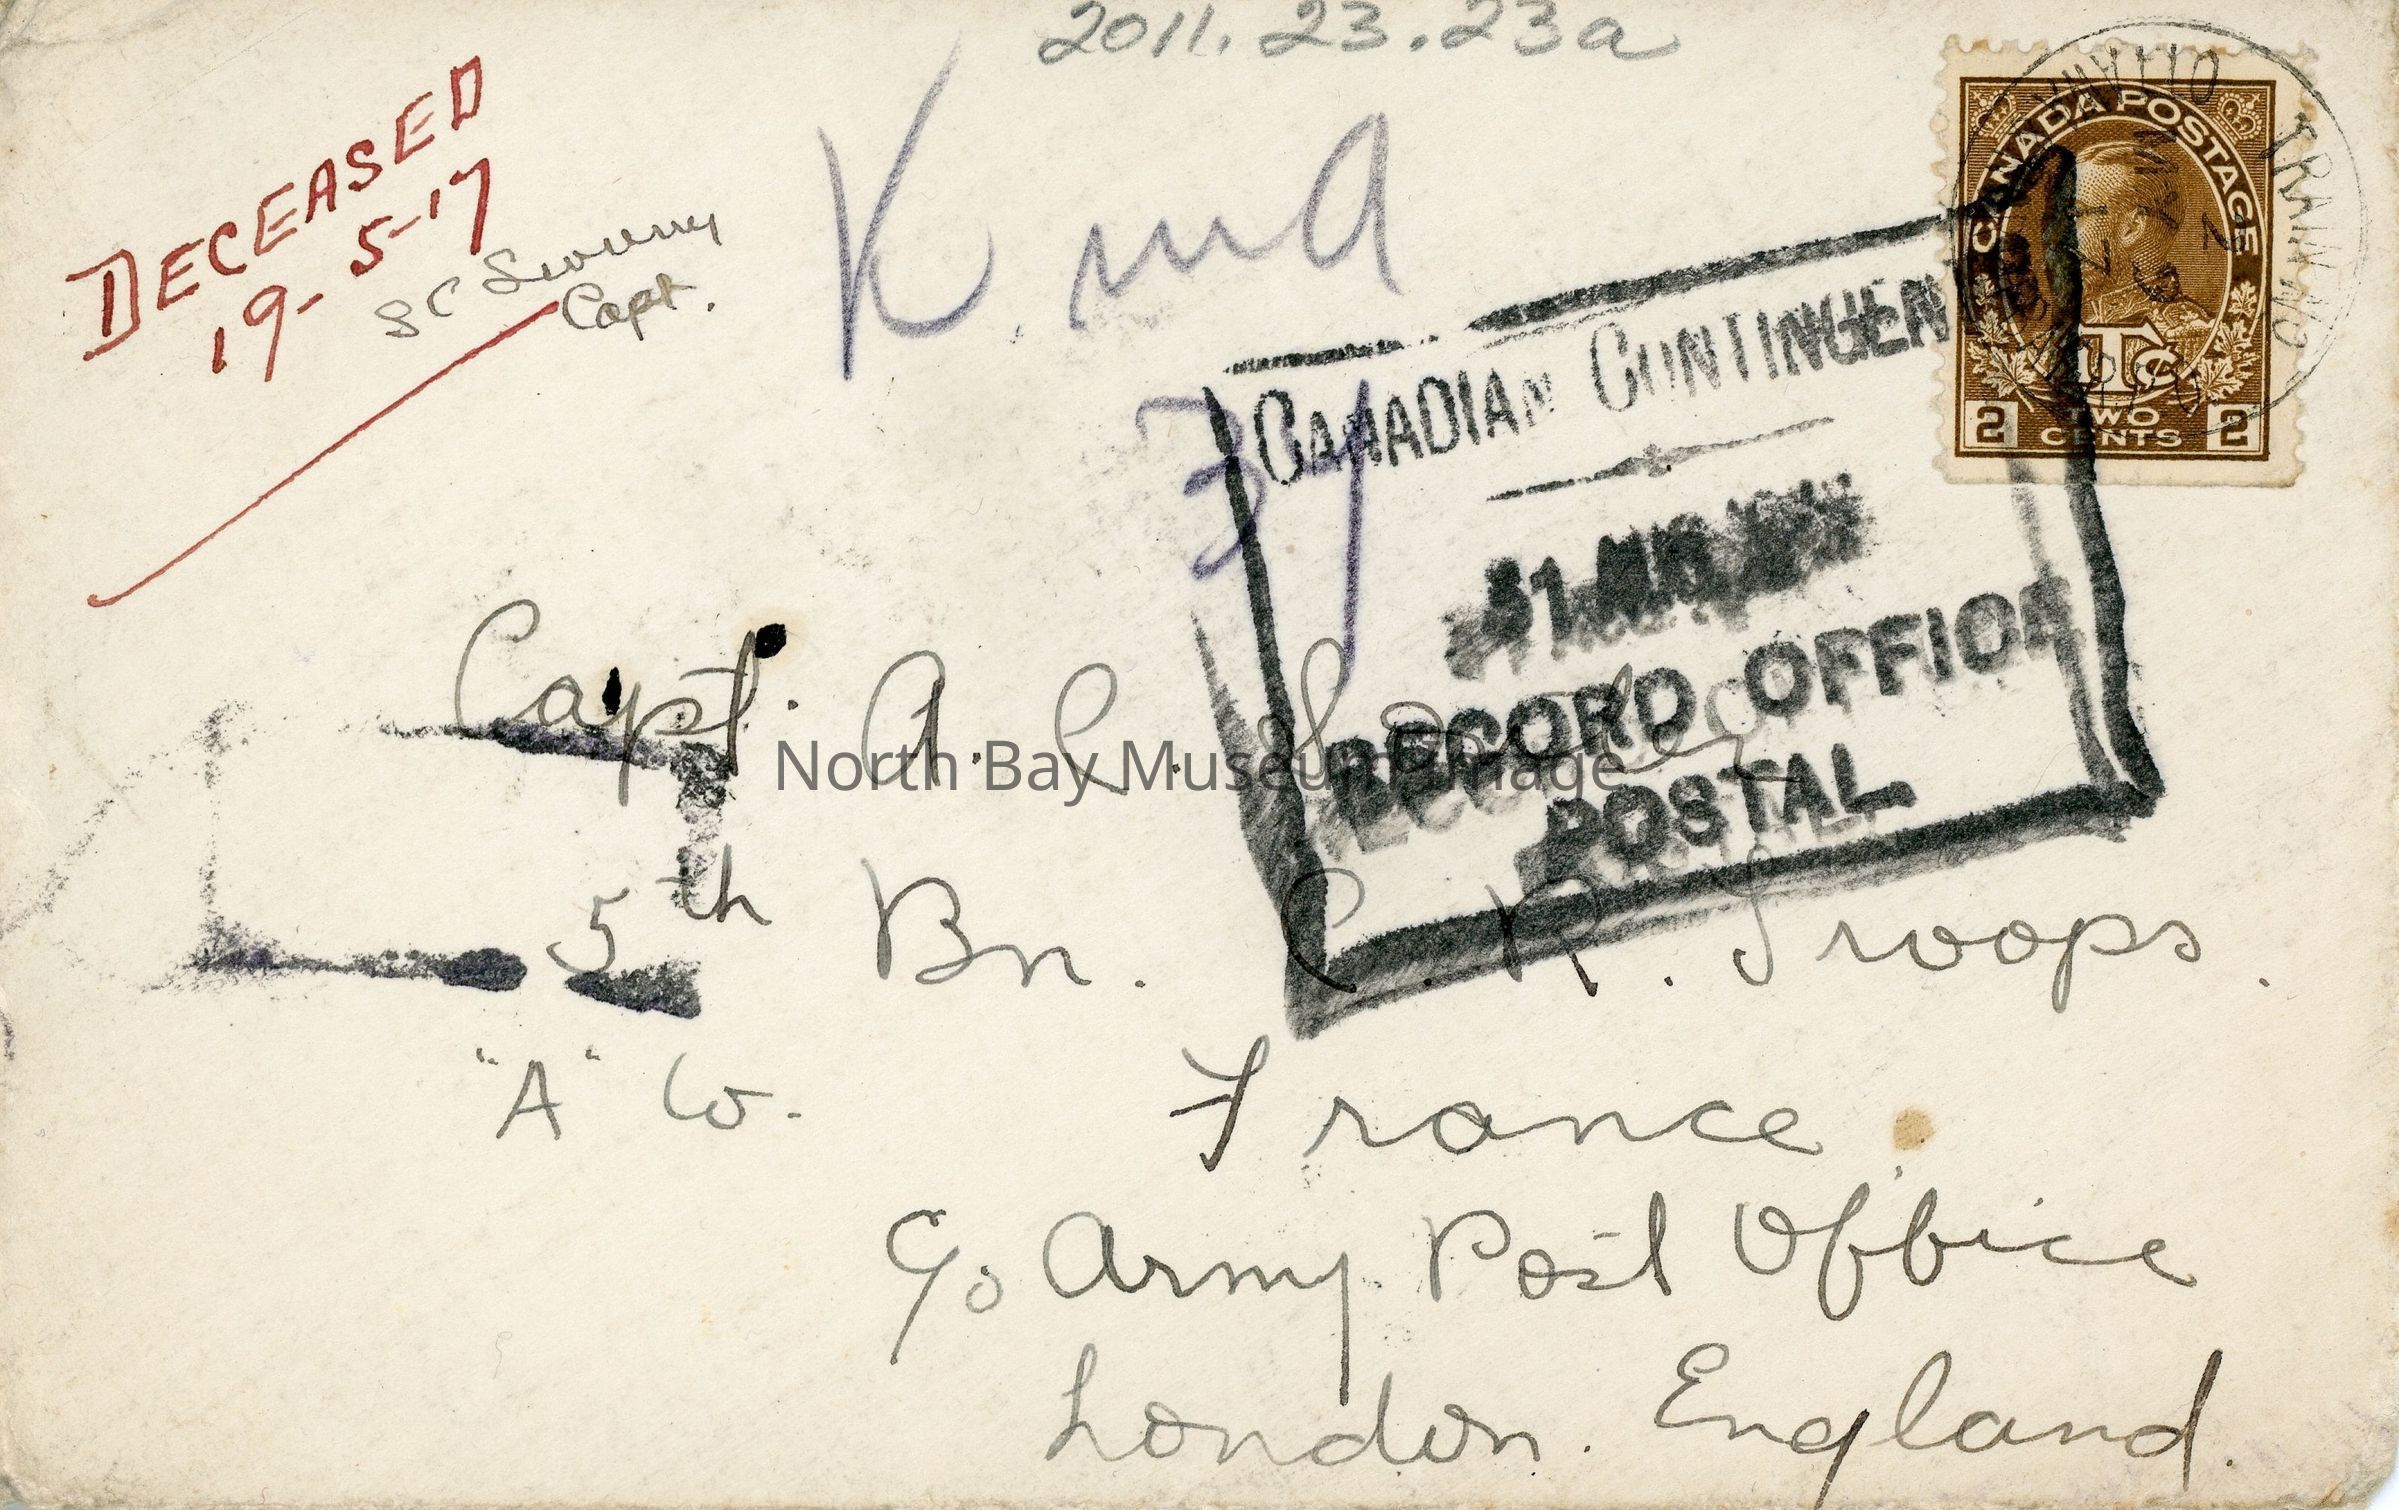 2011.23.23a
DECEASED
19-5-17
Capt.
K.
CANADA POSTAGE
1Tc
2 TWO CENTS 2
TRAIN NO
MY 9
17
CANADIAN CONTINGEN
31 AUG
RECORD OFFICE
POSTAL.
Capt. A. L.
North Bay Museum Image
5th Bn. C. R. Troops.
"A" Co.
France
C/o Army Post Office
London. England.